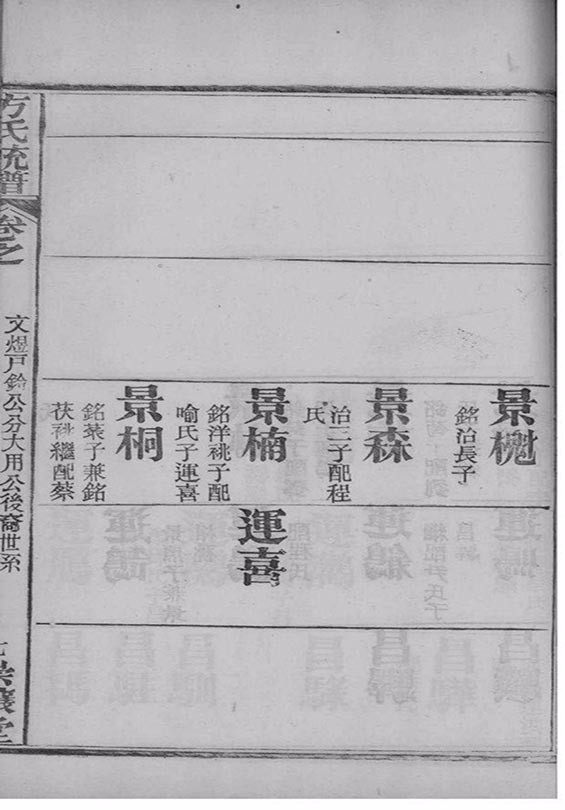 景櫆
銘治長子
景森
治三子配程
氏
景楠
銘洋祧子配
喻氏子運喜
景桐
銘棻子兼銘
茯祧繼配蔡
運喜
方氏統譜
卷之
文煜戶鈴公分大用公後裔世系